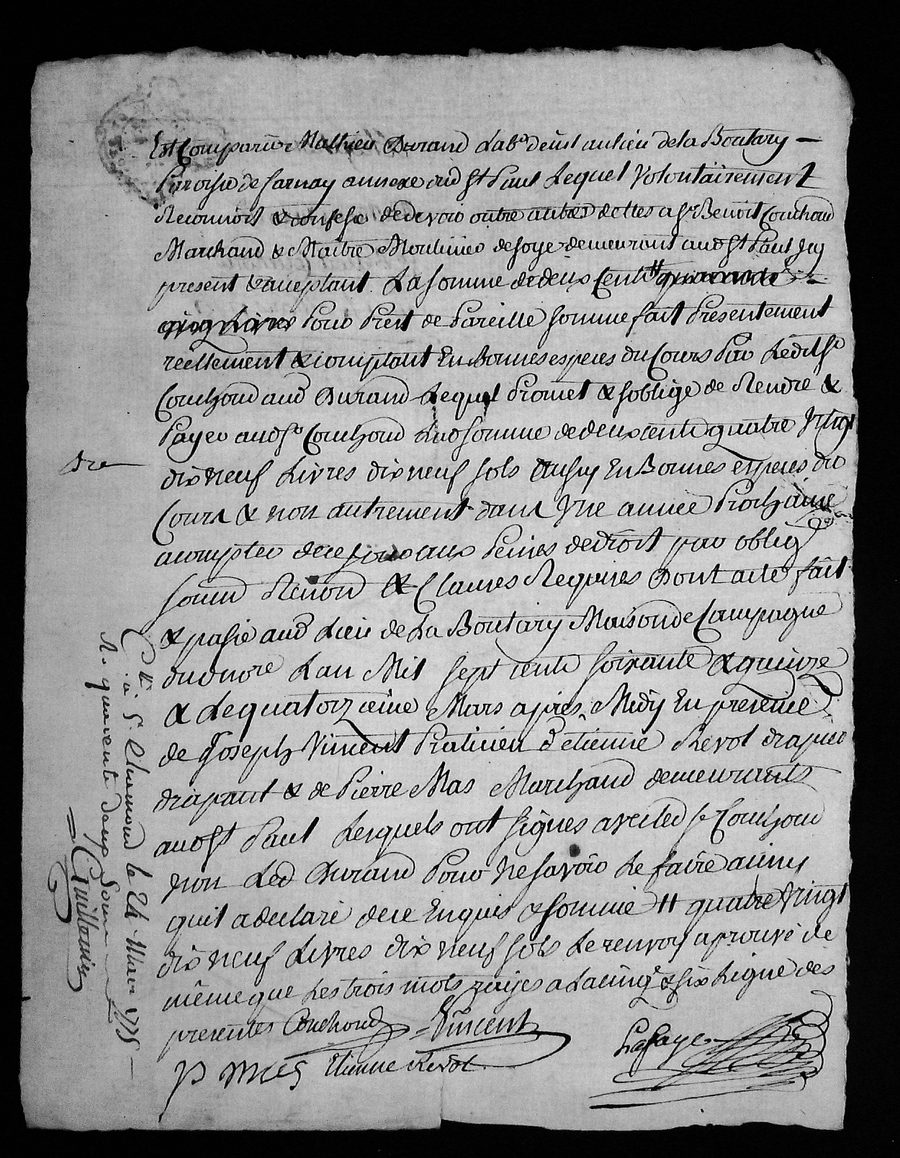 Est Comparu Mathieu Durand Lab.r deist au lieu de la Boutary
Paroisse de farnay annexe dud St Paul Lequel Volontairement
Reconnoit & confesse de devoir outre autres dettes a Sr Benoit Couchoud
Marchand & Maitre Moulinier de soye demeurant aud St Paul icy
present & acceptant La somme de deux Cent # quarante
cinq Livres Pour Prest de Pareille somme fait Presentement
reellement & comptant En Bonnes especes du Cours Par Ledit Sr
Couchoud aud Durand Lequel Promet & soblige de Rendre &
Payer aud Sr Couchoud Lad somme de deux cents quatre Vingt
dix neuf Livres dix neuf sols Aussy En Bonnes especes du
Cours & non autrement dans Une année Prochaine
a compter de ce jour aux Peines de droit par oblig
soum Renon & Clauses Requises Dont acte fait
& passé aud Lieu de La Boutary Maison de Campagne
du notre Lan Mil sept cents soixante & quinze
& Le quatorzieme Mars apres Midy En presence
de Joseph Vincent Praticien d'etienne Revol drapier
drapant & de Pierre Mas Marchand demeurants
aud St Paul Lesquels ont signes avec led Sr Couchoud
non Led Durand Pour ne savoir Le faire ainsy
quil a declaré de ce Enquis & sommé # quatre Vingt
dix neuf Livres dix neuf sols Le renvoy aprouvé de
même que Les trois mots rayes a La cinq & six Ligne des
presentes Couchoud Vincent
P mas Etienne Revol Lafaye
C.té à St Chamond le 24 Mars 1775
R. quarante deux sous
Guillaumin